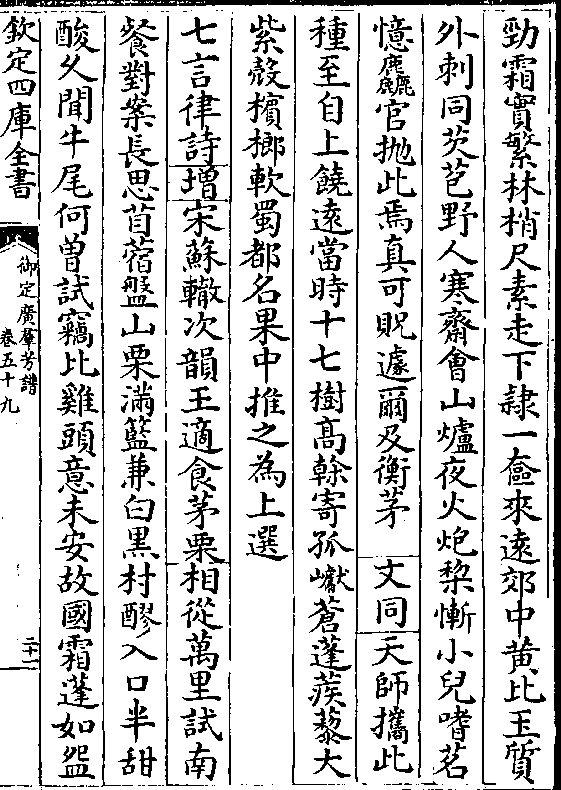 勁霜實繁林梢尺素走下隷一奩來遠郊中黄比玉質
外刺同芡苞野人寒齋會山爐夜火炮梨慚小兒嗜茗
憶麤官抛此焉真可貺遽爾及衡茅 文同 天師攜此
種至自上饒遠當時十七樹髙榦寄孤巘蒼蓬蒺藜大
紫殻檳榔軟蜀都名果中推之為上選
七言律詩増宋蘇轍次韻王適食茅栗相從萬里試南
餐對案長思苜蓿盤山栗滿籃兼白黒村醪入口半甜
酸久聞牛尾何曽試竊比雞頭意未安故國霜蓬如盌
欽定四庫全書
御定廣羣芳譜
卷五十九
二十一